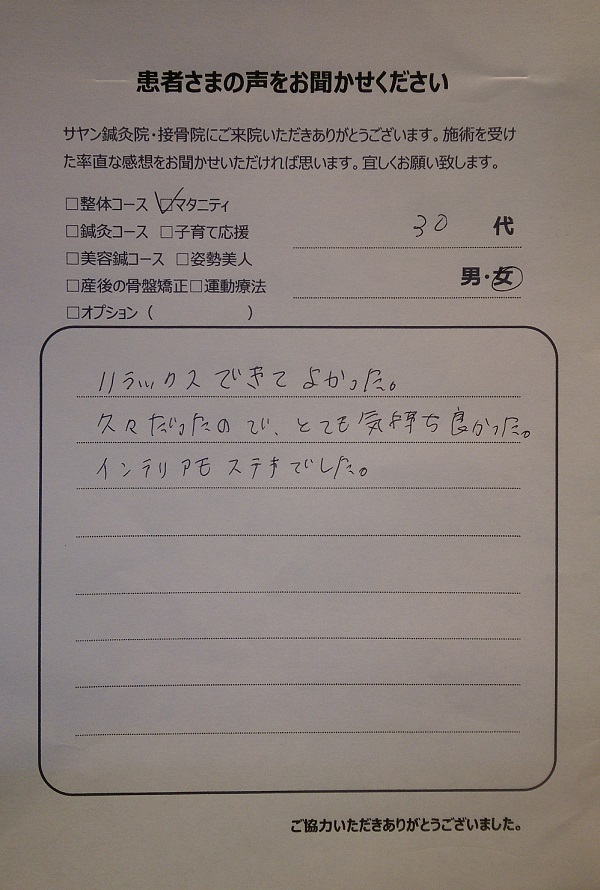 患者さまの声をお聞かせください
サヤン鍼灸院・接骨院にご来院いただきありがとうございます。施術を受け
た率直な感想をお聞かせいただければ思います。宜しくお願い致します。
□整体コース ☑マタニティ
□鍼灸コース □子育て応援
□美容鍼コース □姿勢美人
□産後の骨盤矯正□運動療法
□オプション（ ）
30 代
男・女
リラックスできてよかった。
久々だったので、とても気持ち良かった。
インテリアもステキでした。
ご協力いただきありがとうございました。